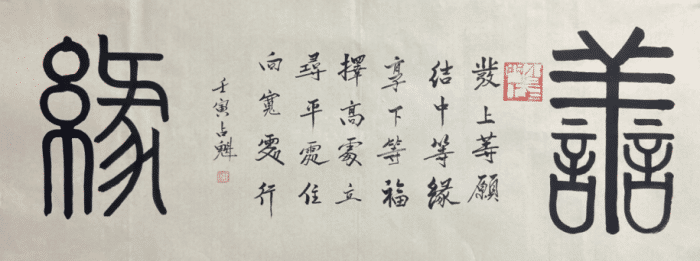 譱緣
發上等願
結中等緣
享下等福
擇高處立
尋平處住
向寬處行
壬寅占魁